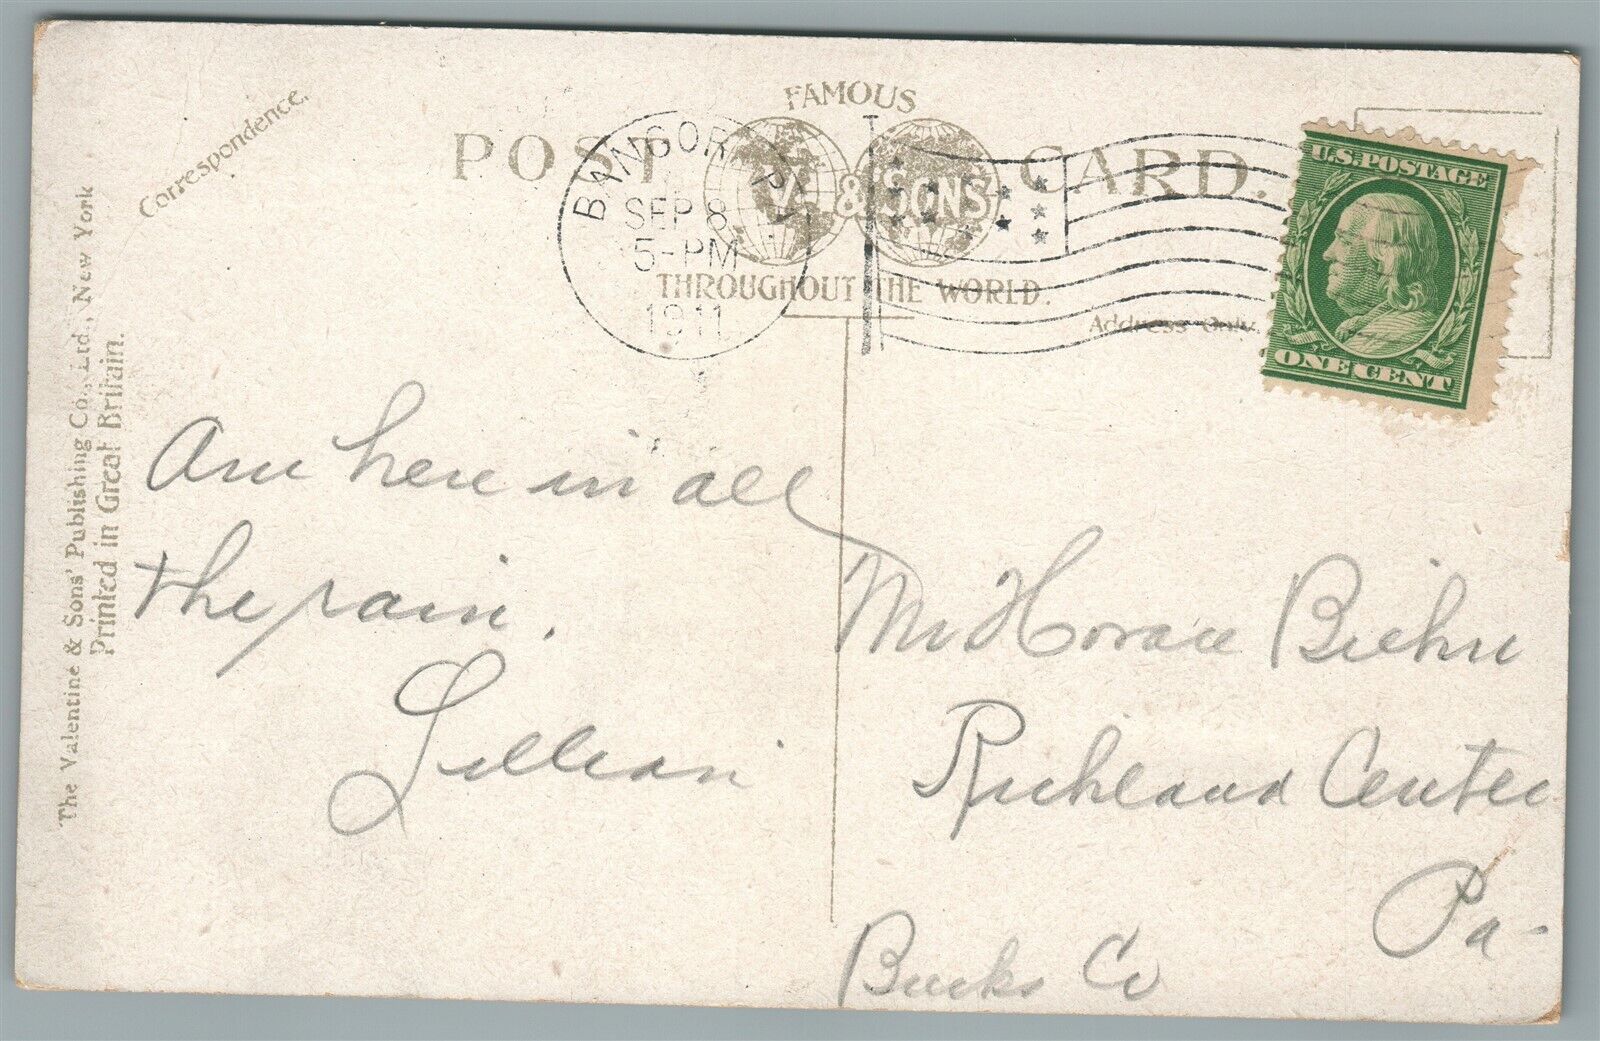 Correspondence.
FAMOUS
POST CARD.
V. & SONS
THROUGHOUT THE WORLD.
BANGOR PA
SEP 8
5-PM
1911
Address Only.
U.S. POSTAGE
ONE CENT
The Valentine & Sons' Publishing Co., Ltd., New York
Printed in Great Britain.
Am here in all
the rain.
Lillian
Mr Horace Biehn
Richland Center
Pa-
Bucks Co